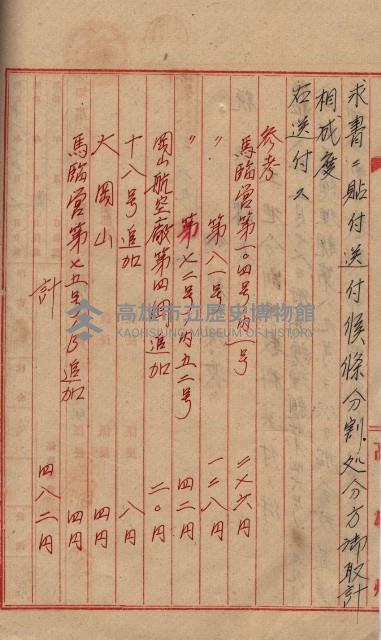 求書ニ貼付送付候條分割処分方御取計
相成度
右送付ス
参考
馬臨營第一〇四号ノ内一号 二七六円
〃 第八一号 一二八円
〃 第七二号ノ内五二号 四二円
岡山航空廠第四個 追加 二〇円
十八号追加 八円
大岡山 四円
馬臨營第七五号ノB追加 四円
計 四八二円
高雄市立歷史博物館
KAOHSIUNG MUSEUM OF HISTORY